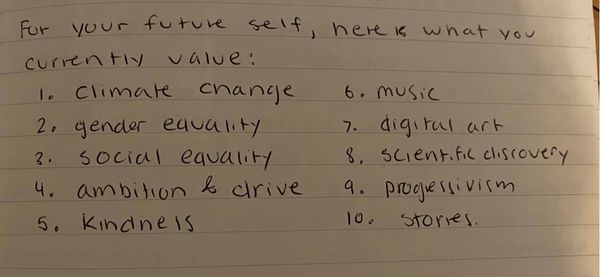 For your future self, here is what you
currently value:
1. Climate change
2. gender equality
3. social equality
4. ambition & drive
5. kindness
6. music
7. digital art
8. scientific discovery
9. progessivism
10. stories.